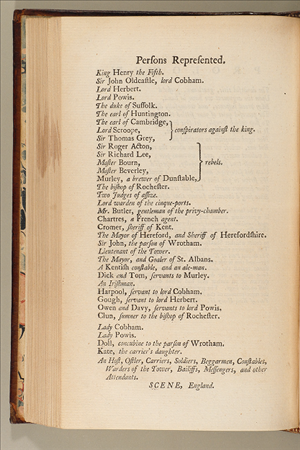 Persons Represented.
King Henry the Fifth.
Sir John Oldcastle, lord Cobham.
Lord Herbert.
Lord Powis.
The duke of Suffolk.
The earl of Huntington.
The earl of Cambridge,
Lord Scroope,
Sir Thomas Grey,
conspirators against the king.
Sir Roger Acton,
Sir Richard Lee,
Master Bourn,
Master Beverley,
Murley, a brewer of Dunstable,
rebels.
The bishop of Rochester.
Two Judges of assize.
Lord warden of the cinque-ports.
Mr. Butler, gentleman of the privy-chamber.
Chartres, a French agent.
Cromer, sheriff of Kent.
The Mayor of Hereford, and Sheriff of Herefordshire.
Sir John, the parson of Wrotham.
Lieutenant of the Tower.
The Mayor, and Goaler of St. Albans.
A Kentish constable, and an ale-man.
Dick and Tom, servants to Murley.
An Irishman.
Harpool, servant to lord Cobham.
Gough, servant to lord Herbert.
Owen and Davy, servants to lord Powis.
Clun, sumner to the bishop of Rochester.
Lady Cobham.
Lady Powis.
Doll, concubine to the parson of Wrotham.
Kate, the carrier's daughter.
An Host, Ostler, Carriers, Soldiers, Beggarmen, Constables,
Warders of the Tower, Bailiffs, Messengers, and other
Attendants.
SCENE, England.